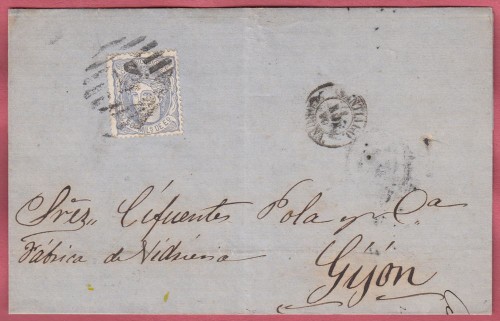 Srez,, Cifuentes Pola y Ca
Fábrica de Vidrieria
Gijón